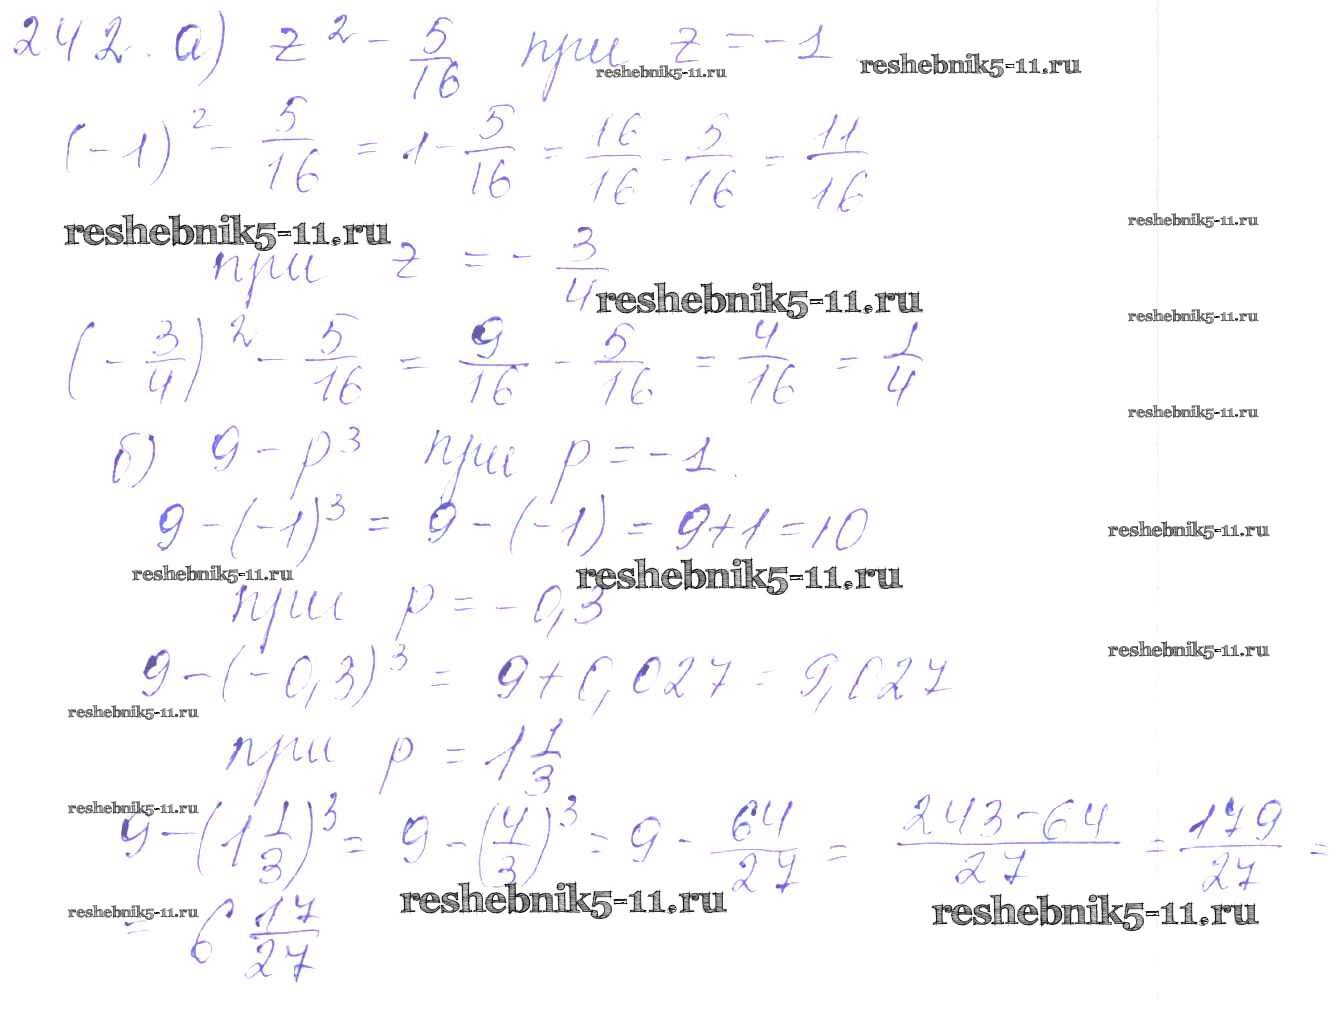 242. а) z² - 5/16 при z = -1
reshebnik5-11.ru
reshebnik5-11.ru
(-1)² - 5/16 = 1 - 5/16 = 16/16 - 5/16 = 11/16
reshebnik5-11.ru
reshebnik5-11.ru
при z = - 3/4
reshebnik5-11.ru
reshebnik5-11.ru
(- 3/4)² - 5/16 = 9/16 - 5/16 = 4/16 = 1/4
reshebnik5-11.ru
б) 9 - p³ при p = -1
9 - (-1)³ = 9 - (-1) = 9 + 1 = 10
reshebnik5-11.ru
reshebnik5-11.ru
reshebnik5-11.ru
при p = -0,3
reshebnik5-11.ru
9 - (-0,3)³ = 9 + 0,027 = 9,027
reshebnik5-11.ru
при p = 1 1/3
reshebnik5-11.ru
9 - (1 1/3)³ = 9 - (4/3)³ = 9 - 64/27 = 243-64/27 = 179/27 =
reshebnik5-11.ru
reshebnik5-11.ru
reshebnik5-11.ru
= 6 17/27